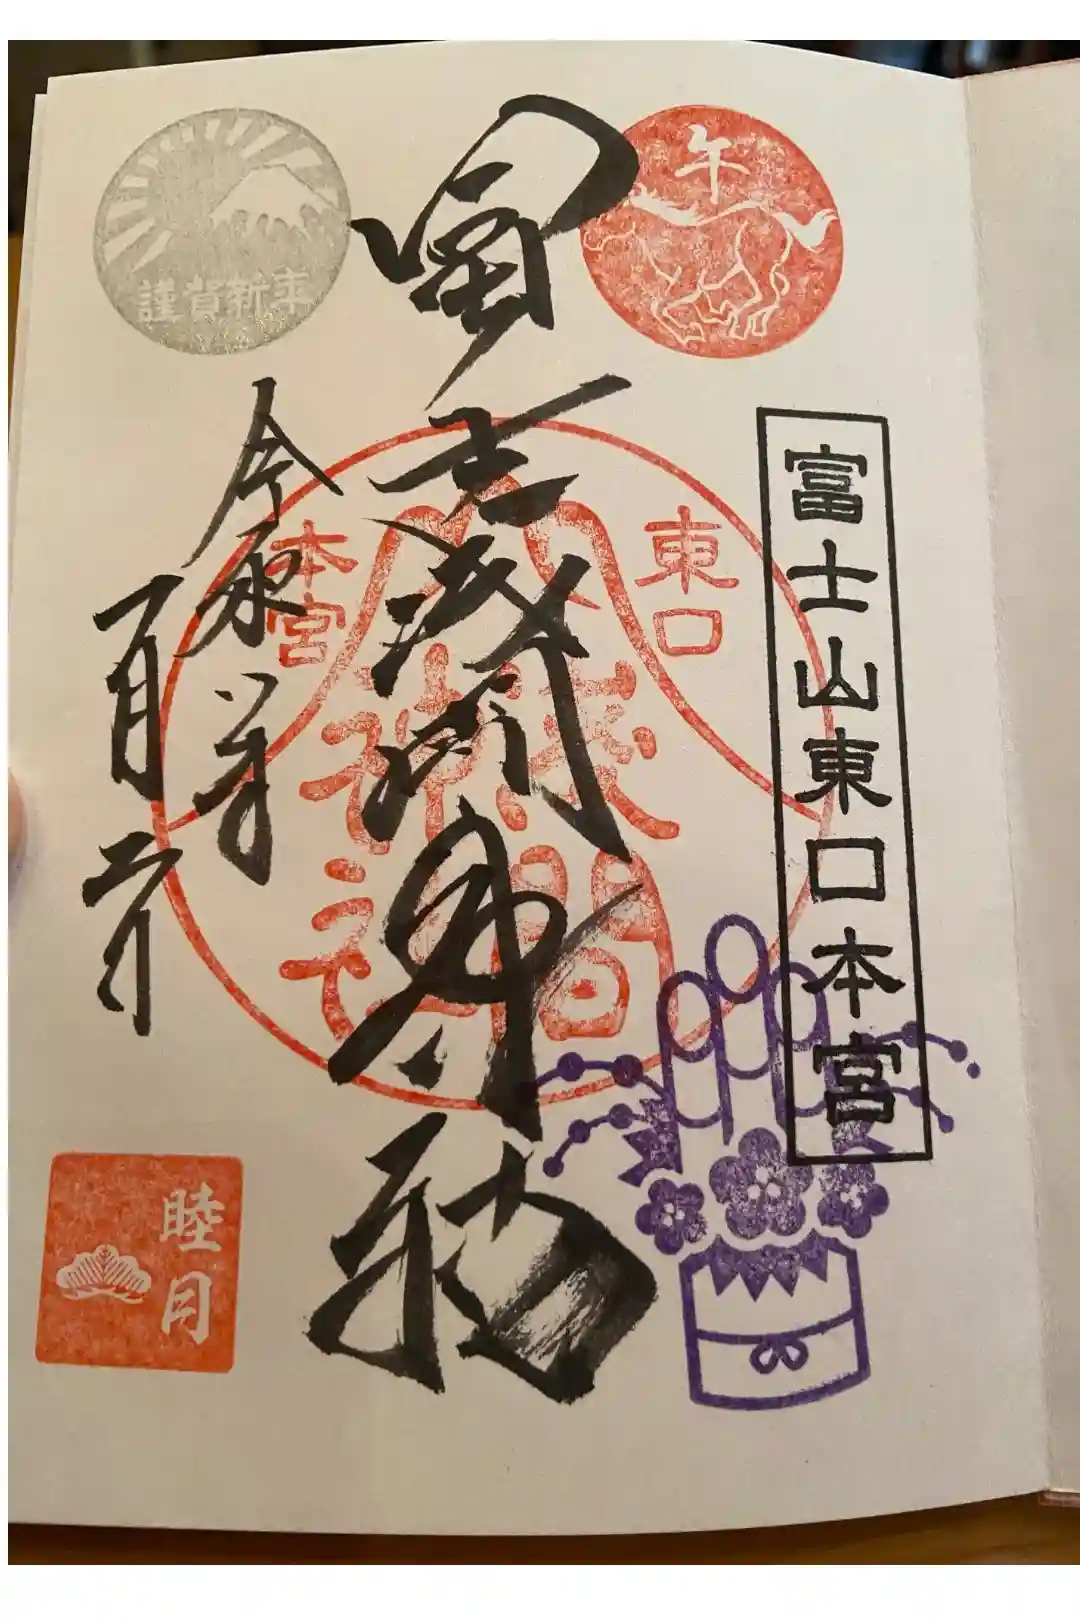 午
謹賀新年
富士山東口本宮
冨士浅間
東口
本宮
浅間
神社
令和八年
一月
睦月